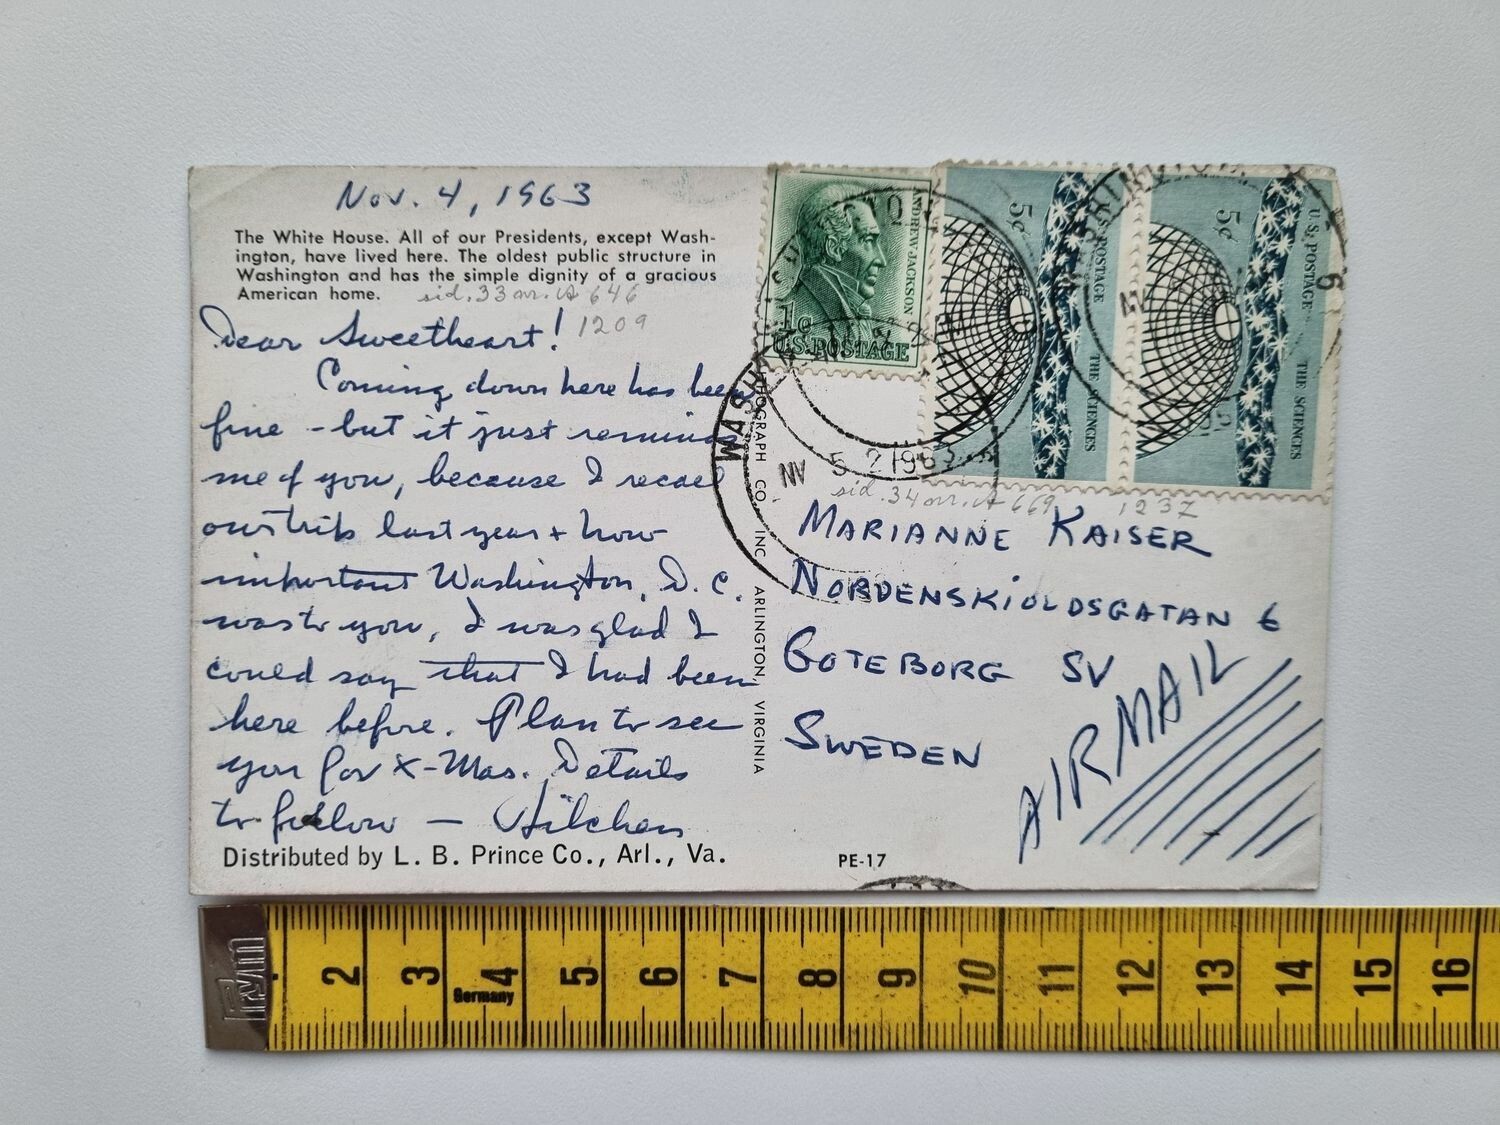 Nov. 4, 1963
The White House. All of our Presidents, except Wash-
ington, have lived here. The oldest public structure in
Washington and has the simple dignity of a gracious
American home.
sid. 33 nr. A 646
1209
Dear Sweetheart!
Coming down here has been
fine - but it just reminds
me of you, because I recall
our trip last year + how
important Washington, D.C.
was to you, I was glad I
could say that I had been
here before. Plan to see
you for X-Mas. Details
to follow —
Distributed by L. B. Prince Co., Arl., Va.
PE-17
LITHOGRAPH CO., INC. ARLINGTON, VIRGINIA
ANDREW JACKSON
1c
U.S. POSTAGE
5¢
U.S. POSTAGE
THE SCIENCES
5¢
U.S. POSTAGE
THE SCIENCES
WASHINGTON
6
WASH
NV 5 2 1963
sid. 34 nr. A 669
1237
MARIANNE KAISER
NORDENSKIOLDSGATAN 6
GOTEBORG SV
SWEDEN
AIRMAIL
Prym
2 3 4 5 6 7 8 9 10 11 12 13 14 15 16
Germany